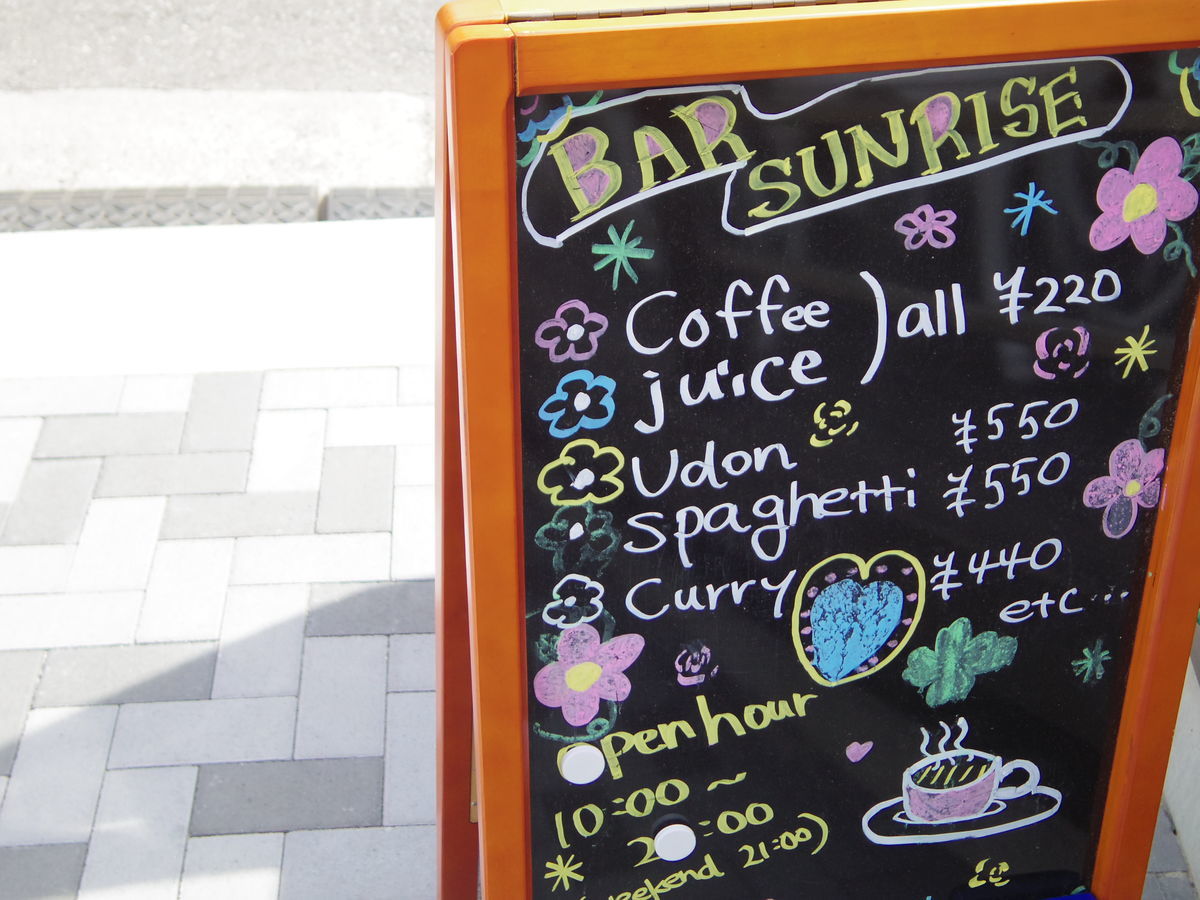 BAR SUNRISE
Coffee ) all ¥220
juice
Udon ¥550
spaghetti ¥550
Curry ¥440
etc...
open hour
10:00 ~
:00
(weekend 21:00)